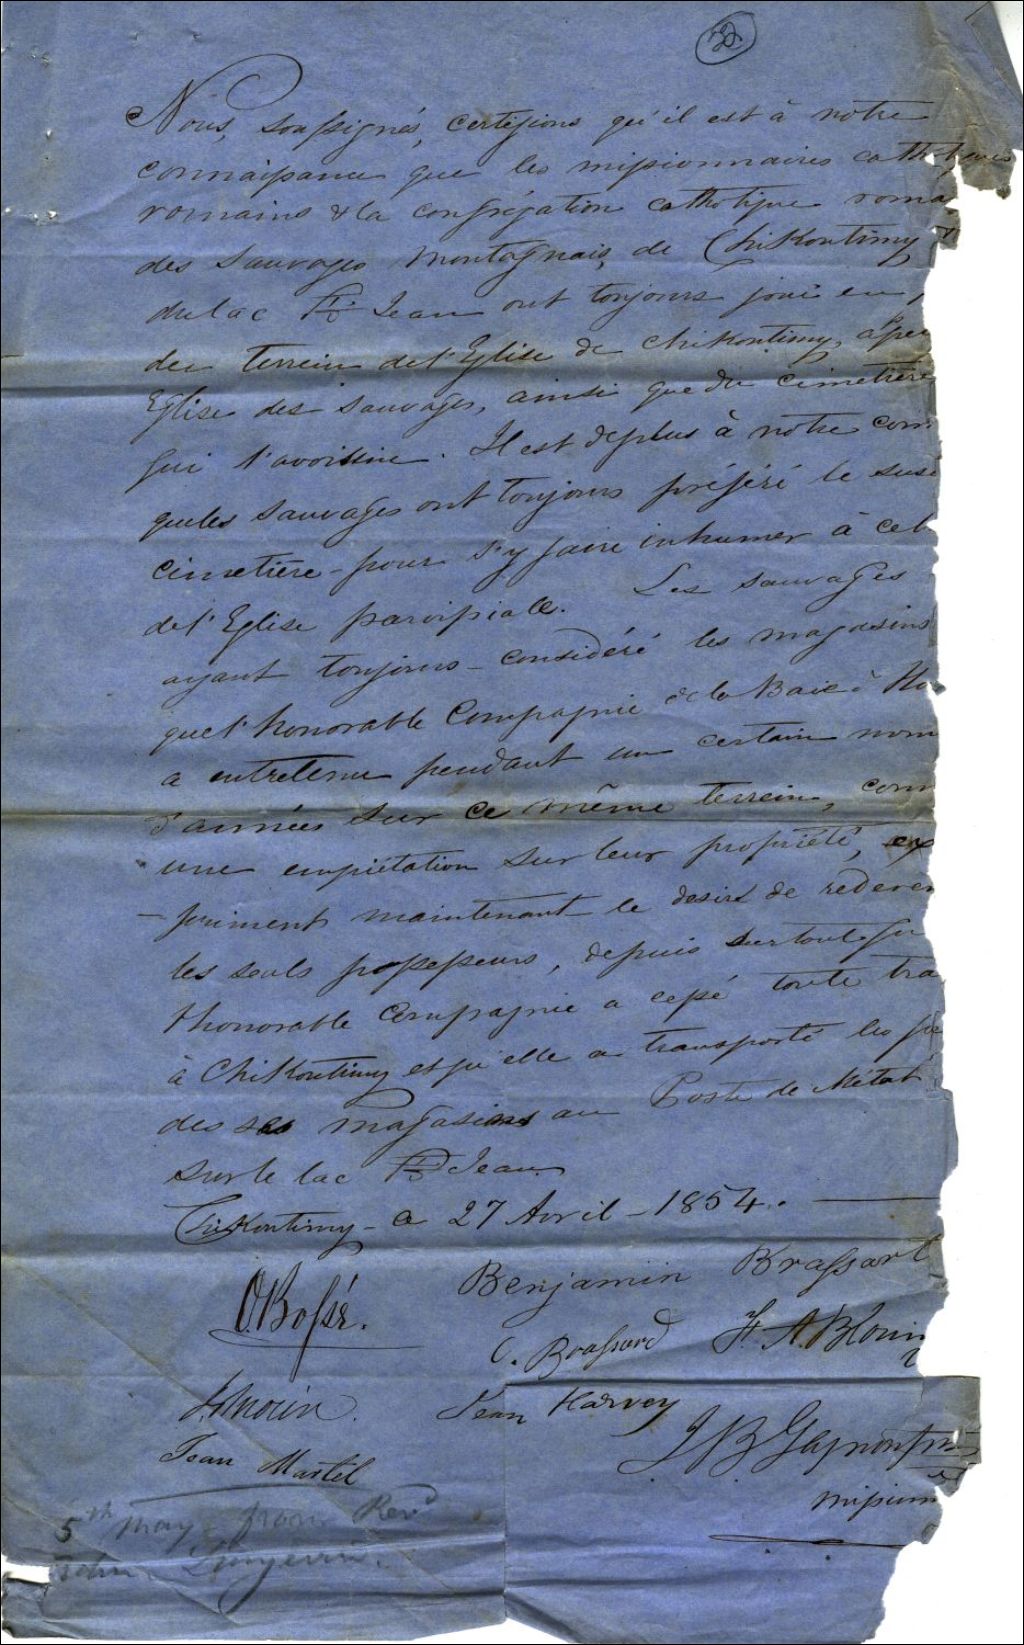 32
Nous, soussignés, certifions qu'il est à notre
connaissance que les missionnaires catholiques
romains & la congrégation catholique roma
des Sauvages Montagnais, de Chikoutimy &
du lac St Jean ont toujours joui en
du terrein de l'Eglise de Chikoutimy,
Eglise des Sauvages, ainsi que du cimetière
qui l'avoisine. Il est de plus à notre conn
que les Sauvages ont toujours préféré le sus
cimetière pour s'y faire inhumer à cel
de l'Eglise paroissiale. Les Sauvages
ayant toujours considéré les magasins
que l'honorable Compagnie de la Baie d'Ho
a entretenu pendant un certain nom
d'années sur ce même terrein, com
une empiétation sur leur propriété, ex
-priment maintenant le desire de redeven
les seuls possesseurs, depuis surtout qu
l'honorable Compagnie a cessé toute tra
à Chikoutimy et qu'elle a transporté les
des ses magasins au Poste de Métab
sur le lac St Jean
Chikoutimy - ce 27 Avril - 1854.
Benjamin Brassart
O. Bossé.
C. Brassard F. A. Blouin
J. Morin. Jean Harvey
J B Gagnon
Jean Martel
mission
5th May from Revd
John